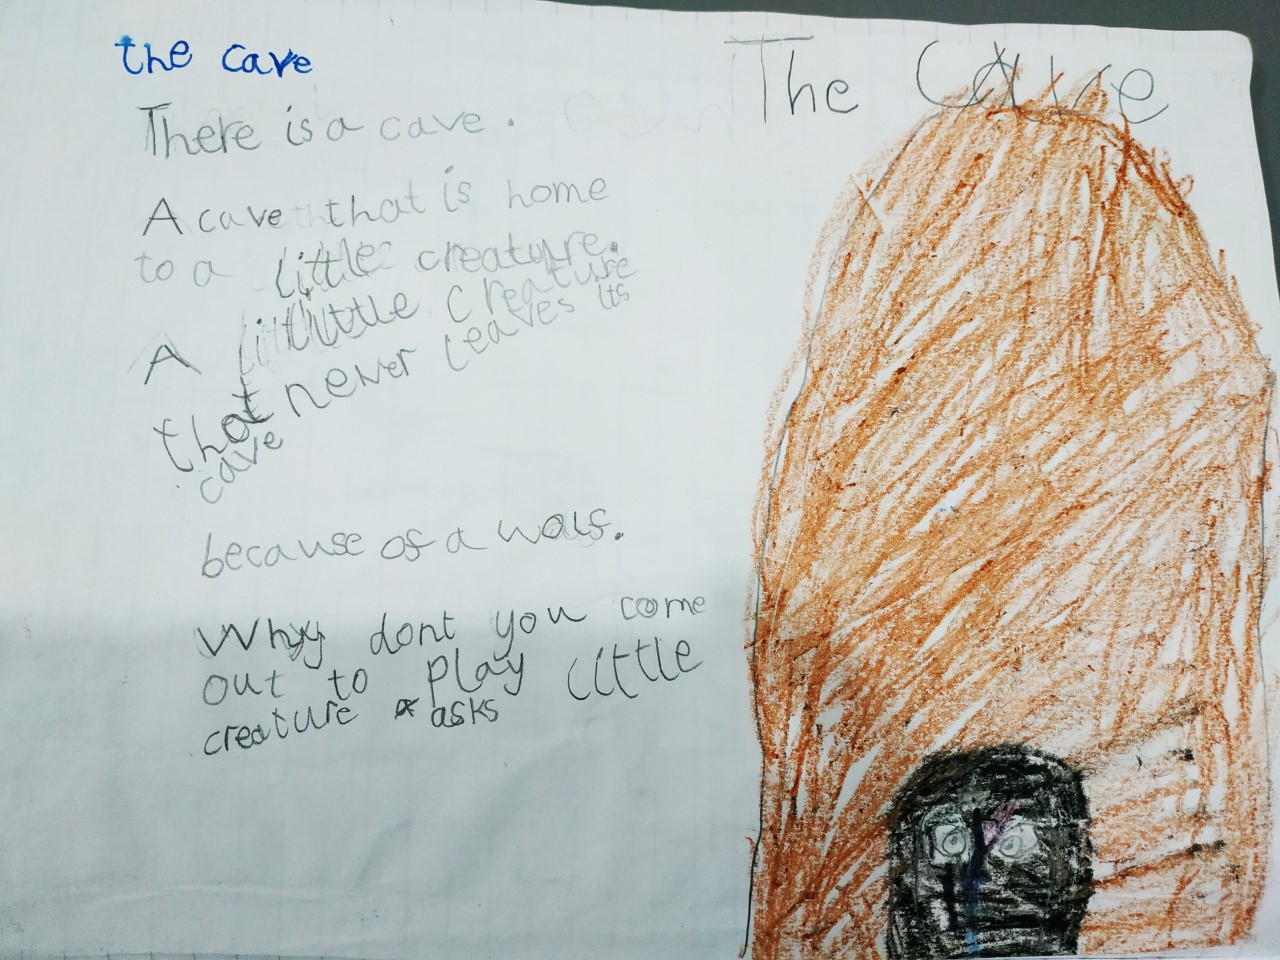 the cave
There is a cave.
A cave that is home
to a little creature.
A little creature
that never leaves its
cave
because of a wolf.
Why dont you come
out to play little
creature asks
The Cave